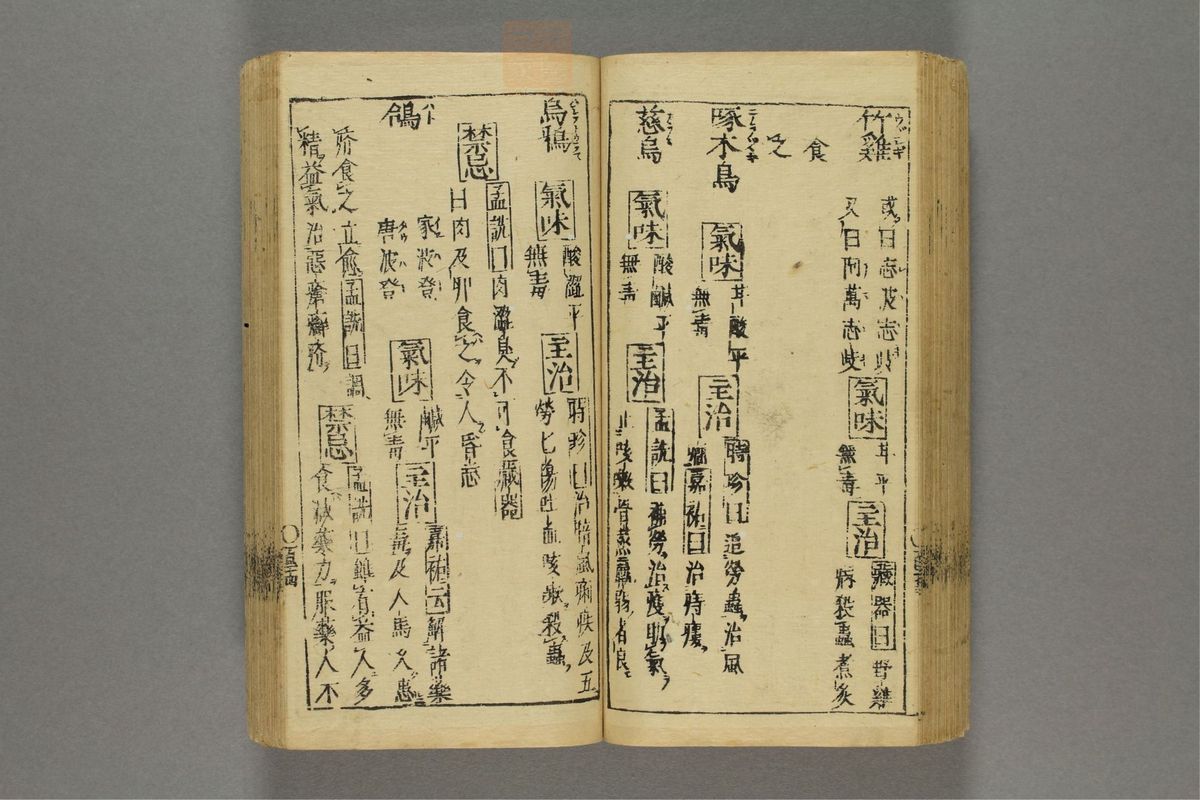 竹雞
或曰志波志岐
又曰阿萬志岐
氣味
甘平
無毒
主治
藏器曰野雞
病殺蟲煮炙
食
之
啄木鳥
氣味
甘酸平
無毒
主治
時珍曰追勞蟲治風
嘉祐曰治痔瘻
慈烏
氣味
酸鹹平
無毒
主治
孟詵曰補勞治瘦助氣
止咳嗽骨蒸羸弱者良
烏鴉
氣味
酸澀平
無毒
主治
時珍曰治暗風癇疾及五
勞七傷吐血咳嗽殺蟲
禁忌
孟詵曰肉澀臭不可食藏器
曰肉及卵食之令人昏忘
鴿
ハト
家波登
唐波登
氣味
鹹平
無毒
主治
嘉祐云解諸藥
毒及人馬久患
疥食之立愈孟詵曰調
精益氣治惡瘡癬疥
禁忌
孟詵曰雖有益人多
食減藥力服藥人不